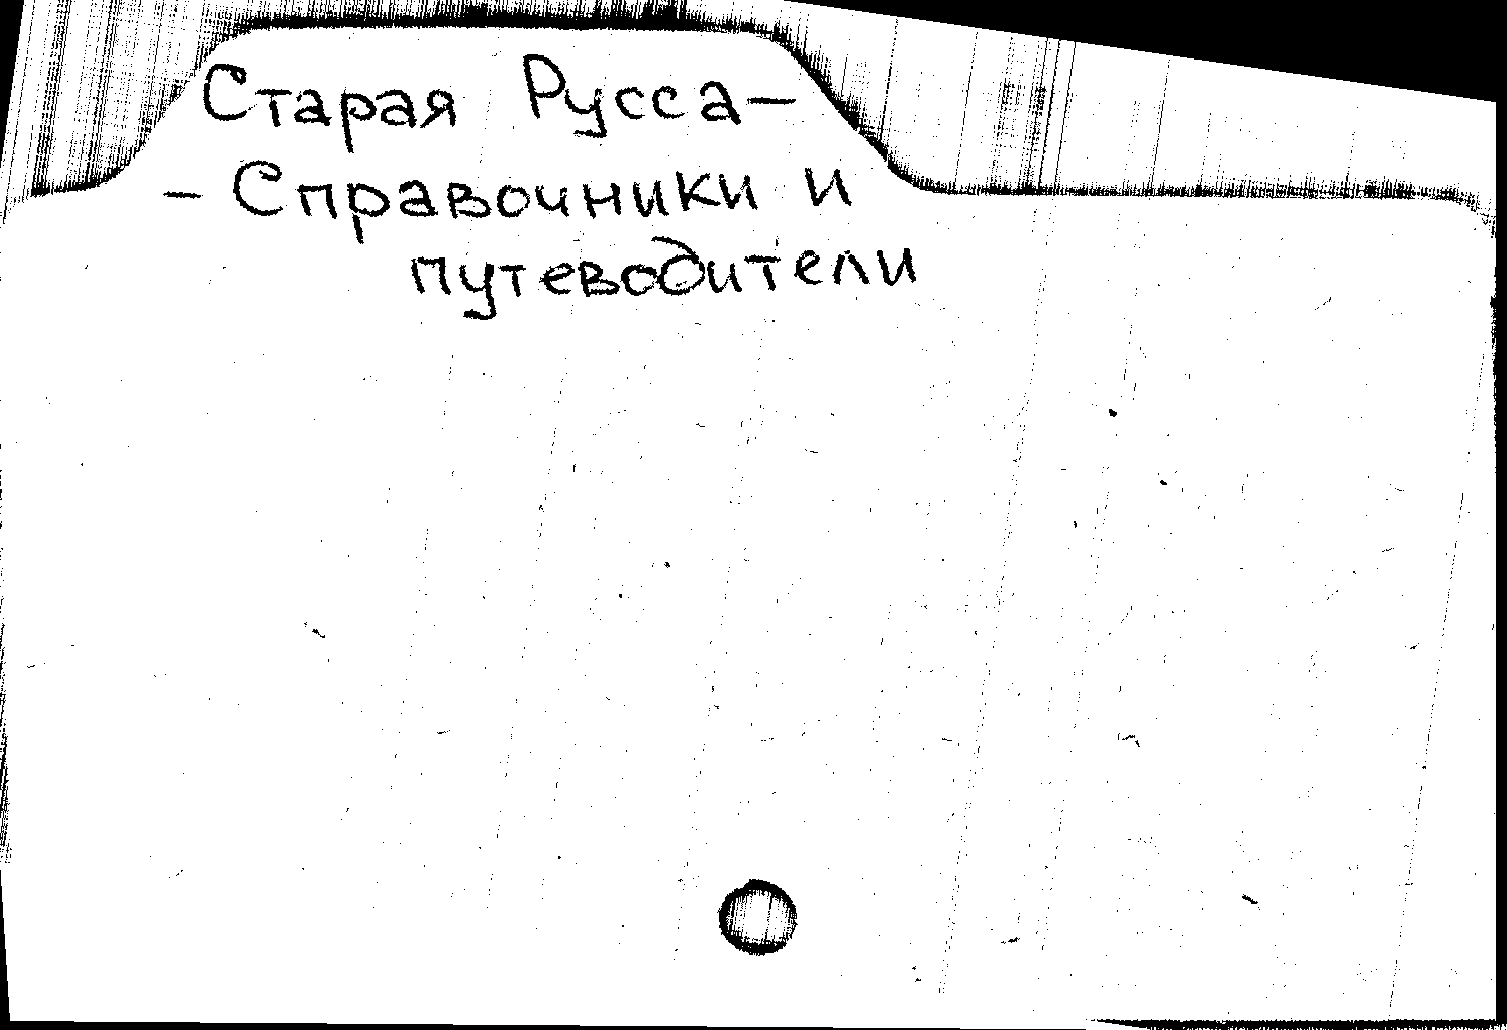 Старая Русса—
— Справочники и
путеводители